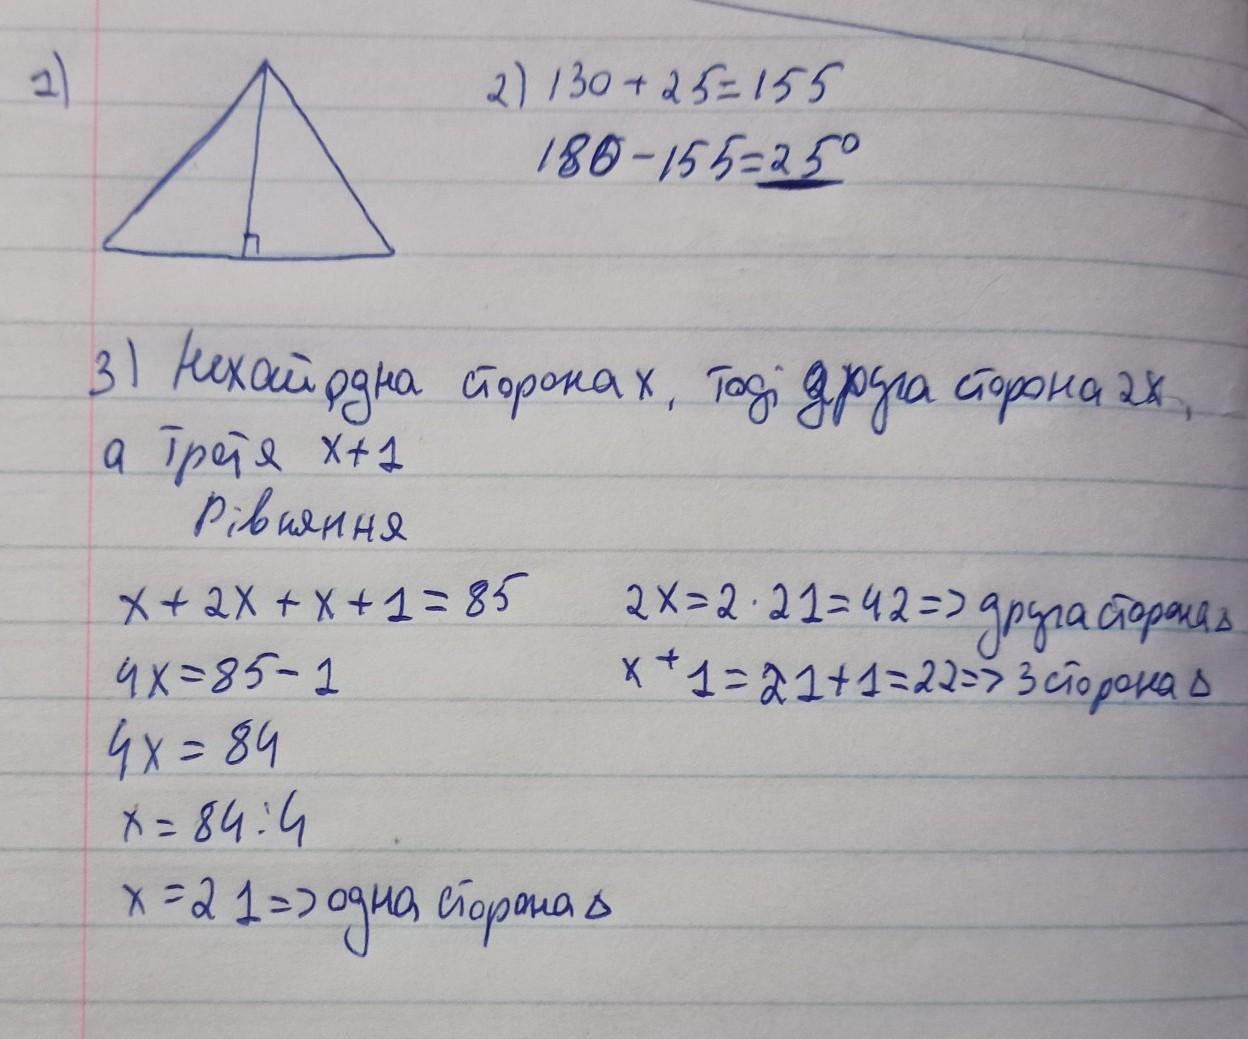 1)
2) 130 + 25 = 155
180 - 155 = 25°
3) Нехай одна сторона x, тоді друга сторона 2x,
а третя x+1
Рівняння
x + 2x + x + 1 = 85
4x = 85 - 1
4x = 84
x = 84 : 4
x = 21 => одна сторона Δ
2x = 2 · 21 = 42 => друга сторона Δ
x + 1 = 21 + 1 = 22 => 3 сторона Δ